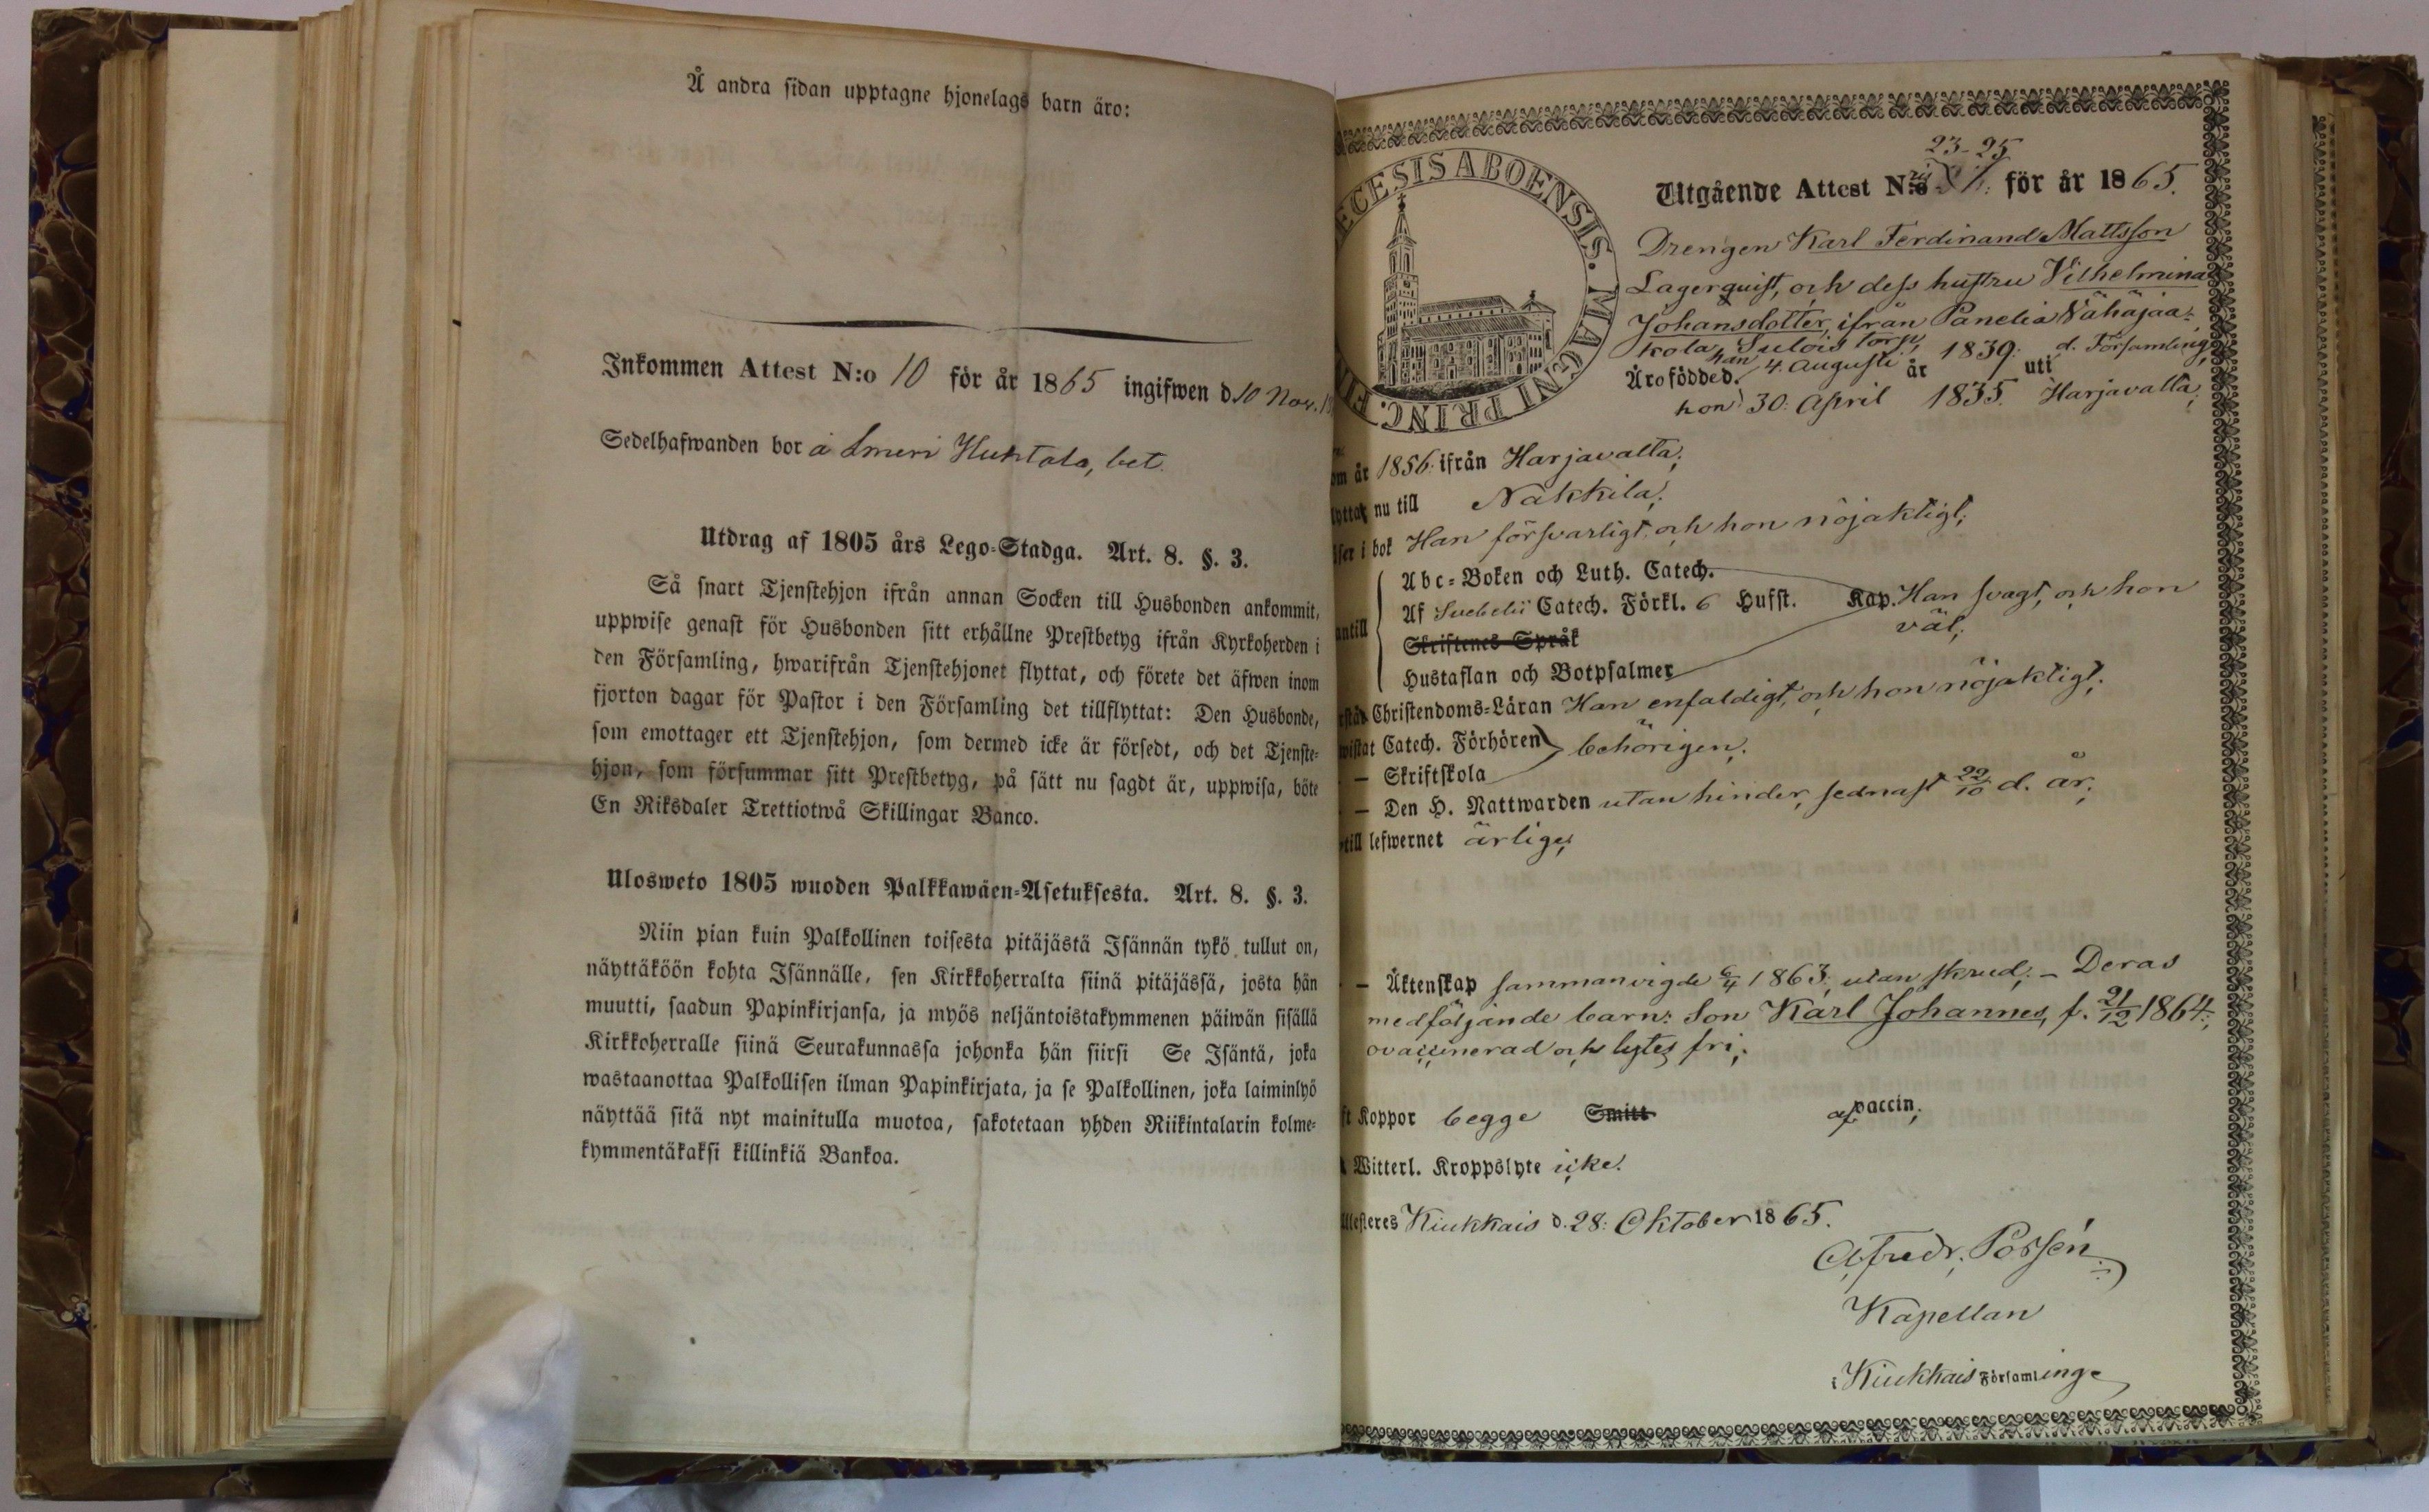 Å andra sidan upptagne hjonelags barn äro:
Inkommen Attest N:o 10 för år 1865 ingifwen d 10 Nov.
Sedelhafwanden bor å Huhtala, bet
Utdrag af 1805 års Lego-Stadga. Art. 8. §. 3.
Så snart Tjenstehjon ifrån annan Socken till Husbonden ankommit,
uppwise genast för Husbonden sitt erhållne Prestbetyg ifrån Kyrkoherden i
den Församling, hwarifrån Tjenstehjonet flyttat, och förete det äfwen inom
fjorton dagar för Pastor i den Församling det tillflyttat: Den Husbonde,
som emottager ett Tjenstehjon, som dermed icke är försedt, och det Tjenste-
hjon, som försummar sitt Prestbetyg, på sätt nu sagdt är, uppwisa, böte
En Riksdaler Trettiotwå Skillingar Banco.
Ulosweto 1805 wuoden Palkkawäen-Asetuksesta. Art. 8. §. 3.
Niin pian kuin Palkollinen toisesta pitäjästä Isännän tykö tullut on,
näyttäköön kohta Isännälle, sen Kirkkoherralta siinä pitäjässä, josta hän
muutti, saadun Papinkirjansa, ja myös neljäntoistakymmenen päiwän sisällä
Kirkkoherralle siinä Seurakunnassa johonka hän siirsi Se Isäntä, joka
wastaanottaa Palkollisen ilman Papinkirjata, ja se Palkollinen, joka laiminlyö
näyttää sitä nyt mainitulla muotoa, sakotetaan yhden Riikintalarin kolme-
kymmentäkaksi killinkiä Bankoa.
ECESIS ABOENSIS. MAGNI PRINC. FIN
23-25
Utgående Attest N:o för år 1865.
Drengen Karl Ferdinand Mattsson
Lagerquist, och dess hustru Vilhelmina
Johansdotter, ifrån Panelia Vähäjaa-
kola, Sulois torp,
Äro födde d. han 4. Augusti år 1839: uti d. Församling,
hon 30: April 1835. Harjavalta;
om år 1856: ifrån Harjavalta;
lyttat nu till Nakkila;
ser i bok Han försvarligt, och hon nöjaktigt;
Abc-Boken och Luth. Catech.
antill Af Svebelii Catech. Förkl. 6 Husst. Kap. Han svagt, och hon
väl;
Skriftenes Språk
Hustaflan och Botpsalmer
rstår Christendoms-Läran Han enfaldigt, och hon nöjaktigt;
wistat Catech. Förhören behörigen;
— Skriftskola
— Den H. Nattwarden utan hinder, sednast 22/10 d. år;
till lefwernet ärlige;
— Äktenskap sammanvigde 6/4 1863; utan skrud; – Deras
medföljande barn: Son Karl Johannes, f. 21/12 1864;
ovaccinerad och lytes fri;
ft Koppor begge Smitt af vaccin;
Witterl. Kroppslyte icke.
ttesteres Kiukkais d. 28: Oktober 1865.
Alfredr. Possén
Kapellan
i Kiukkais Församlinge